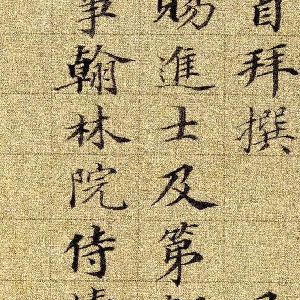 首拜撰
賜進士及第
事翰林院侍